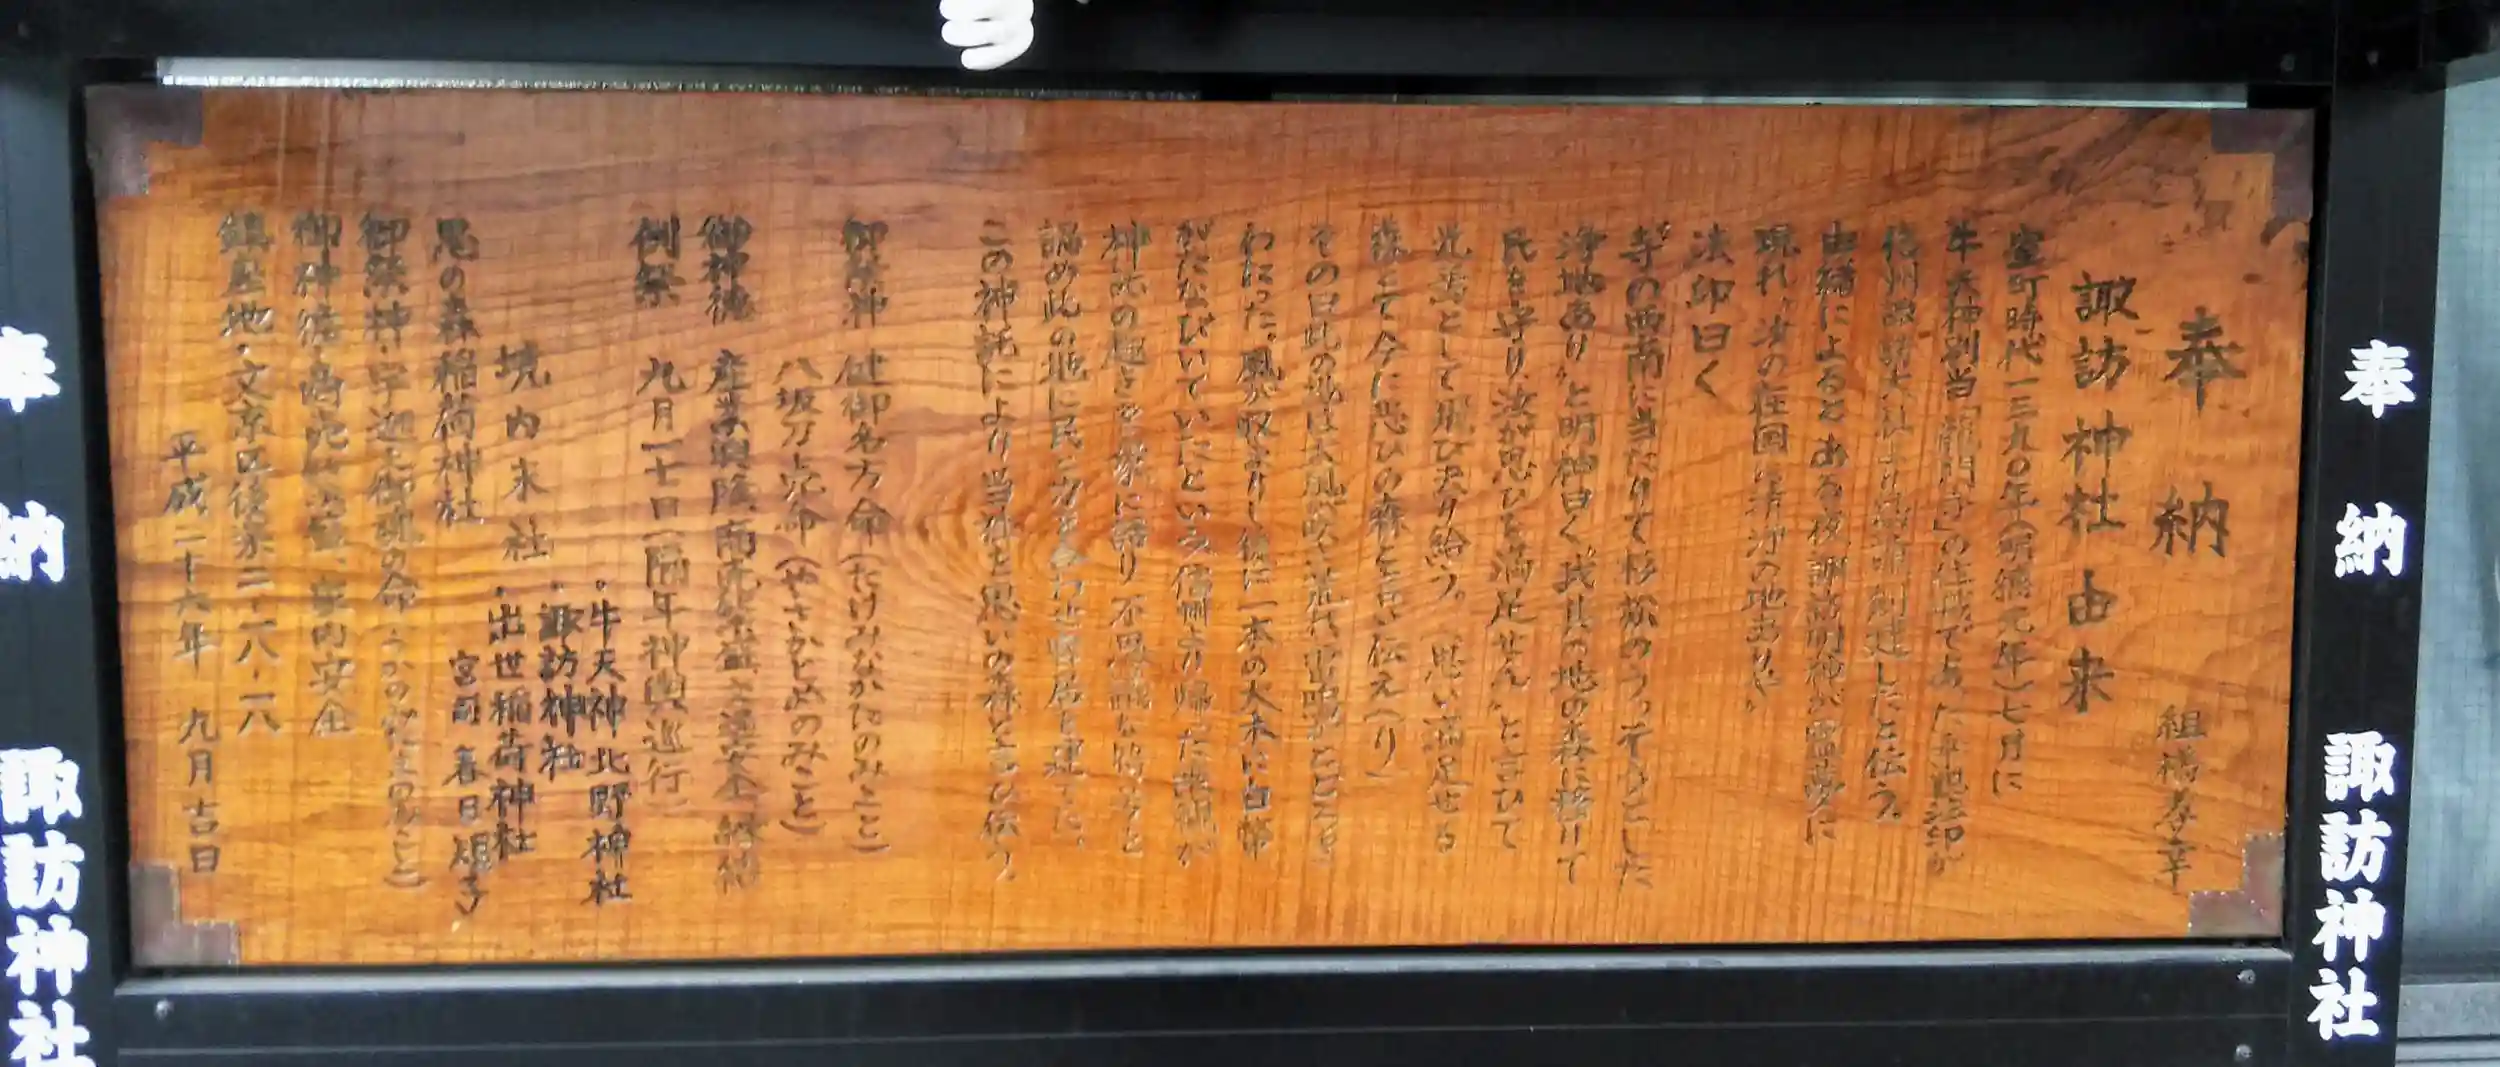 奉納
組橋孝幸
諏訪神社由来
室町時代一三九〇年(明徳元年)七月に
牛天神別当「龍門寺」の住職であった平池法印が
信州諏訪大社より勧請創建したと伝う。
由緒によるとある夜諏訪明神が霊夢に
現れ、汝の在国に清浄の地ありや
法印曰く
寺の西南に当たりて杉松のうっそうとした
浄地あり、と明神曰く我其の地の森に移りて
民を守り、汝が思ひを満足せん、と言ひて
光雲として飛び去り給う。思い満足せる
森とて今に思ひの森と言い伝え(り)
その日此の地は大風が吹き荒れ雷鳴がとどろき
わたった。風が収まりし後に一本の大木に白幣
がたなびいていたという信州より帰った龍門が
神託の趣きを衆に語り不思議な
諏め此の地に民と力を合わせ
この神託により当社を思いの森と言ひ伝う。
御祭神 健御名方命(たけみなかたのみこと)
八坂刀売命(やさかとめのみこと)
御神徳 産業興隆、商売繁盛、交通安全、縁結
例祭 九月二十七日(隔年神輿巡行)
境内末社
・牛天神北野神社
・諏訪神社
・出世稲荷神社
宮司 春日
思の森稲荷神社
御祭神・宇迦之御魂の命(うかの
御神徳・商売繁盛、家内安全
鎮座地・文京区後楽二・一八・一八
平成二十六年 九月吉日
奉納 諏訪神社
奉納 諏訪神社